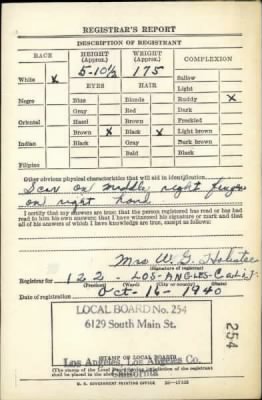 REGISTRAR'S REPORT
DESCRIPTION OF REGISTRANT
RACE
HEIGHT (Approx.)
WEIGHT (Approx.)
COMPLEXION
5-10½
175
White X
Sallow
EYES
HAIR
Light
Negro
Blue
Blonde
Ruddy X
Gray
Red
Dark
Oriental
Hazel
Brown
Freckled
Brown X
Black X
Light brown
Indian
Black
Gray
Dark brown
Bald
Black
Filipino
Other obvious physical characteristics that will aid in identification
Scar on middle right finger
on right hand.
I certify that my answers are true; that the person registered has read or has had
read to him his own answers; that I have witnessed his signature or mark and that
all of his answers of which I have knowledge are true, except as follows:
Mrs W. G.
(Signature of registrar)
Registrar for 122 - LOS-ANGLES-Calif.
(Precinct) (Ward) (City or county) (State)
Date of registration Oct-16-1940
LOCAL BOARD No. 254
6129 South Main St.
254
Los Angeles, Los Angeles Co.
California
(STAMP OF LOCAL BOARD)
(The stamp of the Local Board having jurisdiction of the registrant
shall be placed in the above space.)
U. S. GOVERNMENT PRINTING OFFICE